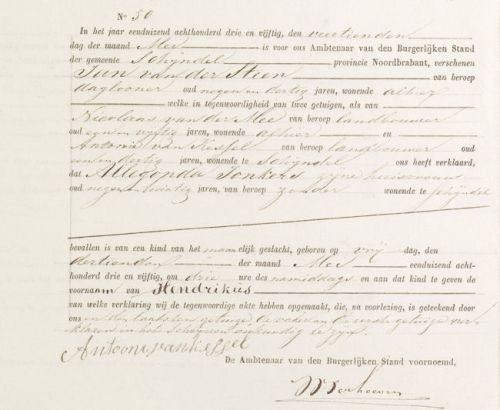 No 50
In het jaar eenduizend achthonderd drie en vijftig, den veertienden
dag der maand Mei is voor ons Ambtenaar van den Burgerlijken Stand
der gemeente Schijndel provincie Noordbrabant, verschenen
Jan van der Steen van beroep
daglooner oud negen en dertig jaren, wonende alhier
welke in tegenwoordigheid van twee getuigen, als van
Nicolaas van der Mee van beroep landbouwer
oud een en vijftig jaren, wonende alhier en
Antonie van Kessel van beroep landbouwer oud
een en dertig jaren, wonende te Schijndel ons heeft verklaard,
dat Allegonda Jonkers zijne huisvrouw
oud negen en twintig jaren, van beroep zonder wonende te Schijndel
bevallen is van een kind van het mannelijk geslacht, geboren op vrij dag, den
dertienden der maand Mei eenduizend acht-
honderd drie en vijftig, om drie ure des namiddags en aan dat kind te geven de
voornaam van Hendrikus
van welke verklaring wij de tegenwoordige akte hebben opgemaakt, die, na voorlezing, is geteekend door
ons en den laatsten getuige de vader en de eerste getuige ver-
klaren in het schrijven onkundig te zijn.
Antoonij van kessel
De Ambtenaar van den Burgerlijken Stand voornoemd,
Verhoeven